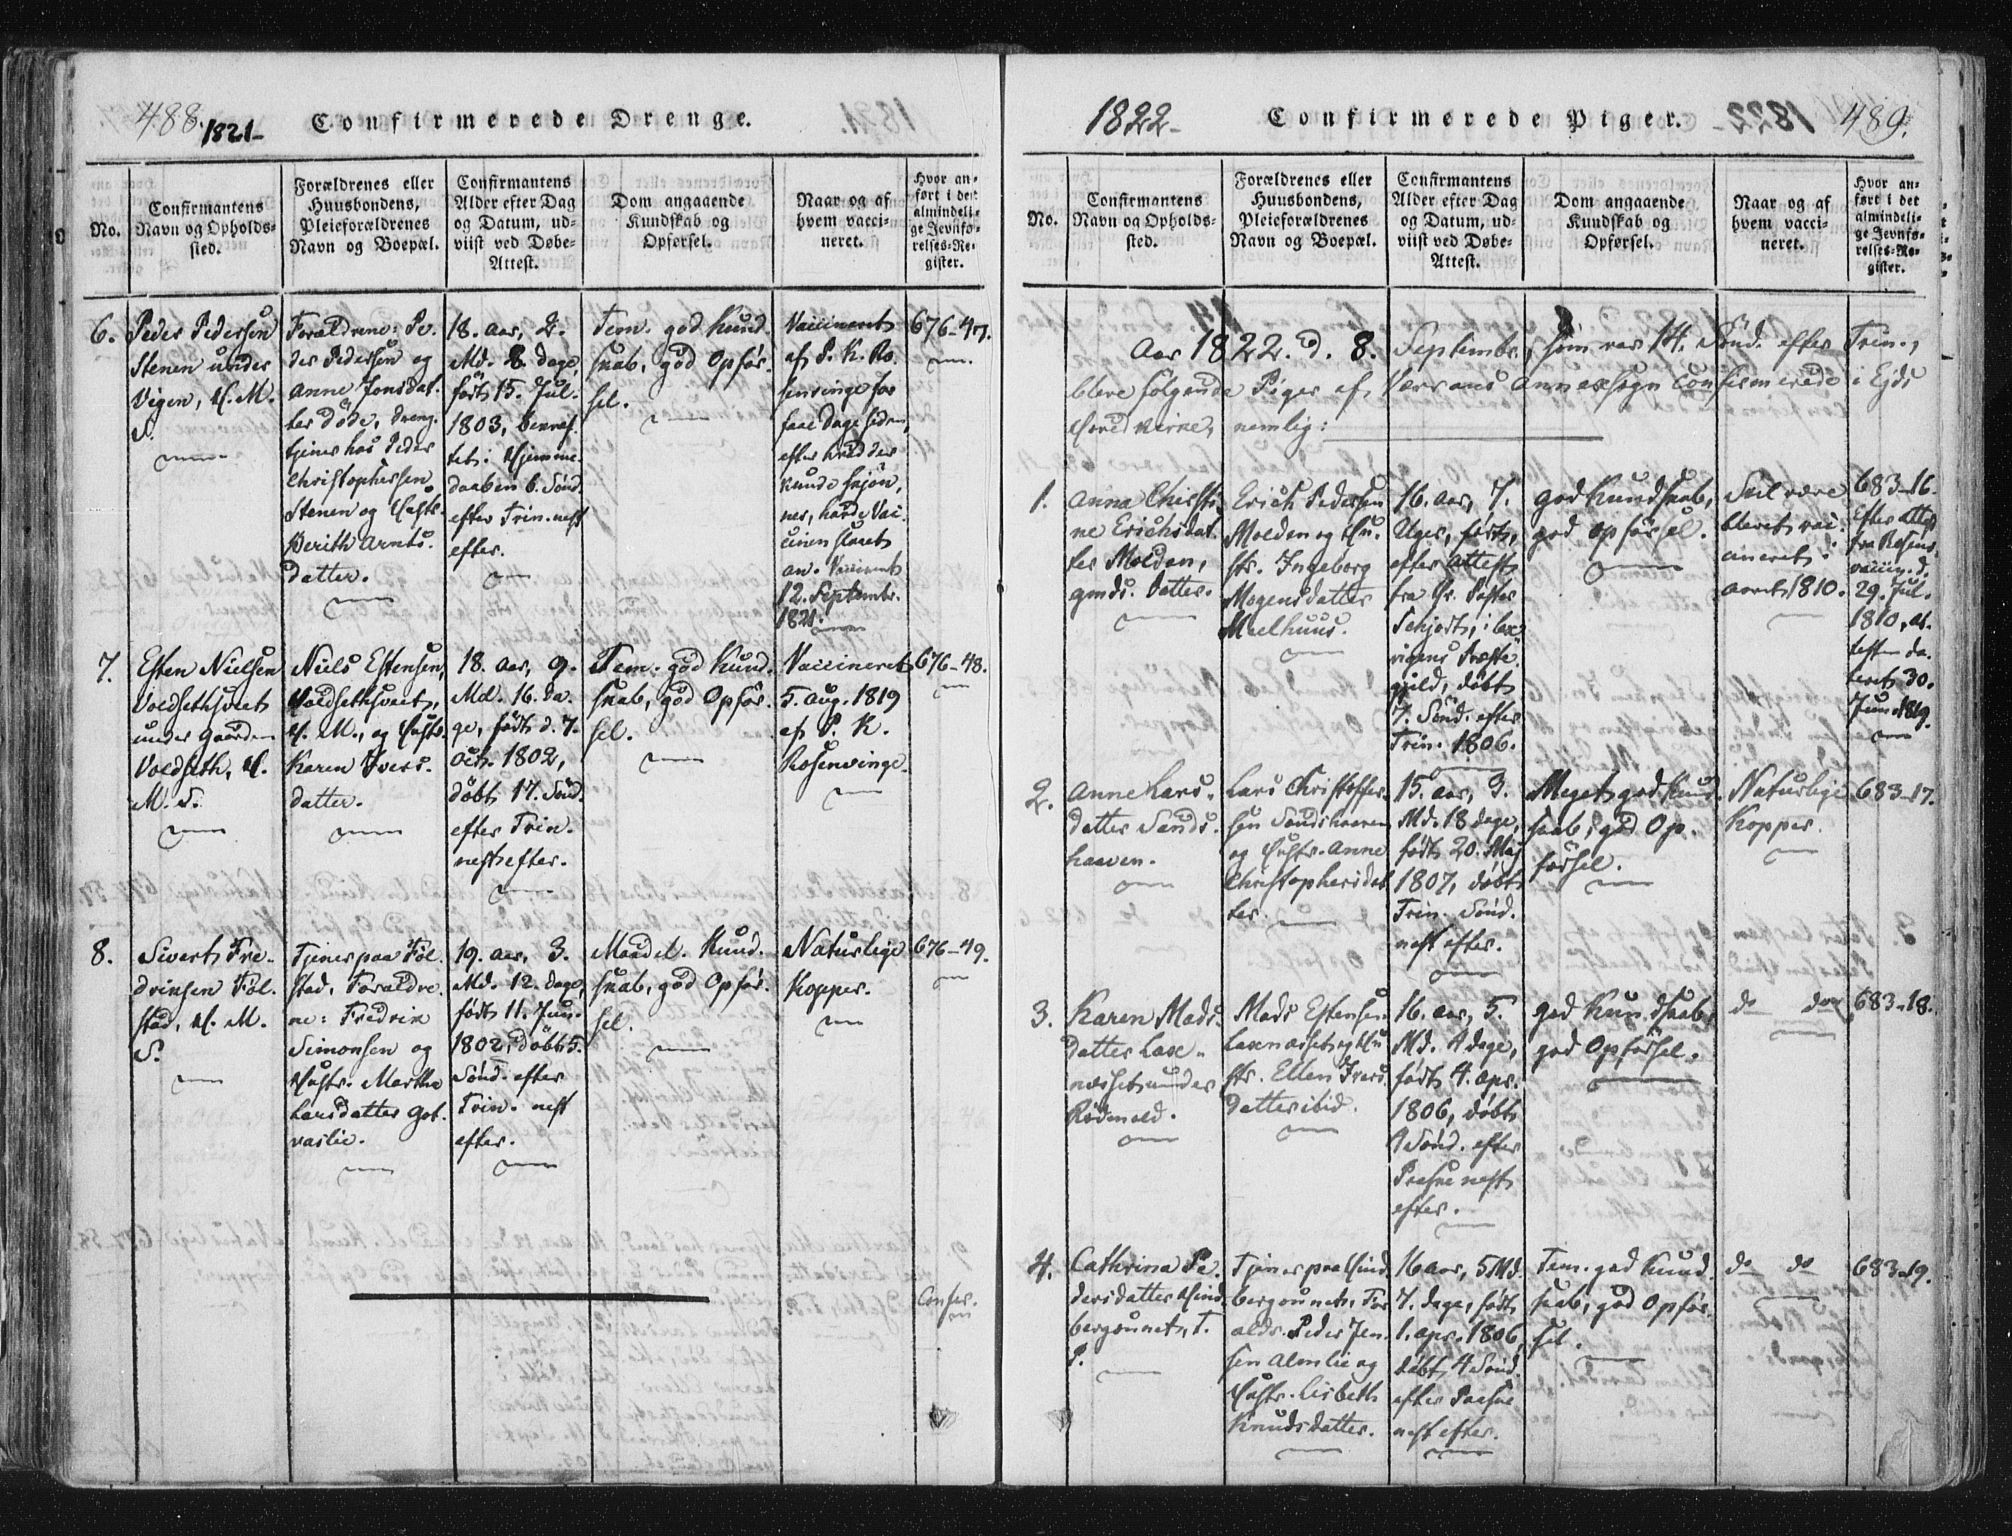 488.
1821-
Confirmerede Drenge.
No.
Confirmantens
Navn og Opholds-
sted.
Forældrenes eller
Huusbondens,
Pleieforældrenes
Navn og Boepæl.
Confirmantens
Alder efter Dag
og Datum, ud-
viist ved Døbe-
Attest.
Dom angaaende
Kundskab og
Opførsel.
Naar og af
hvem vacci-
neret.
Hvor an-
ført i det
almindeli-
ge Jevnfø-
relses-Re-
gister.
6.
Peder Pedersen
Stenen under
Vigen, H. M.
S.
Forældrene: Pe-
der Pedersen og
Anne Jonsdat-
ter døde, dreng.
tjener hos Peder
Christophersen
Stenen og Hustr.
Berith Arnts-
datter.
18. Aar, 2.
Md. 8 dage,
født 15. Jul.
1803,
Hjemme-
daaben 6. Sønd.
efter Trin. nest
efter.
Tem. god Kund-
skab, god Opfør-
sel.
Vaccineret
af P. K. Ro-
senvinge for
faae Dage siden,
efter hvad der
kunde skjøn-
nes, havde Vac-
cinen slaaet
an. Vaccineret
12. Septembr.
1821.
676-47.
7.
Esten Nielsen
Voldsethsveet
under Gaarden
Voldseth, H.
M. S.
Niels Estensen,
Voldsethsveet,
H. M., og Hustr.
Karen Ivers-
datter.
18. Aar, 9.
Md. 16. Da-
ge, født d. 7.
Oct. 1802,
døbt 17. Sønd.
efter Trin.
nest efter.
Tem. god Kund-
skab, god Opfør-
sel.
Vaccineret
5. Aug. 1819
af P. K.
Rosenvinge.
676-48.
8.
Sivert Fre-
driksen Føl-
stad, H. M.
S.
Tjener paa Føl-
stad. Forældre-
ne: Fredrik
Simonsen og
Hustr. Marthe
Larsdatter Got-
vaslie.
19. Aar, 3.
Md. 12. Dage,
født 11. Jun.
1802, døbt 5.
Sønd. efter
Trin. nest
efter.
Maadel. Kund-
skab, god Opfør-
sel.
Naturlige
Kopper.
676-49.
Confer.
1822-
Confirmerede Piger.
489.
No.
Confirmantens
Navn og Opholds-
sted.
Forældrenes eller
Huusbondens,
Pleieforældrenes
Navn og Boepæl.
Confirmantens
Alder efter Dag
og Datum, ud-
viist ved Døbe-
Attest.
Dom angaaende
Kundskab og
Opførsel.
Naar og af
hvem vacci-
neret.
Hvor an-
ført i det
almindeli-
ge Jevnfø-
relses-Re-
gister.
Aar 1822. d. 8. Septembr., som var 14. Sønd. efter Trin.,
bleve følgende Piger af Værrans Annexsogn Confirmerede i Ejds
Hovedkirke, nemlig:
1.
Anna Christi-
ne Erichsdat-
ter Molden,
gmds. Datter.
Erich Pedersen
Molden og Hu-
str. Ingeborg
Mogensdatter
Mælhuus.
16. Aar, 7.
Uger, født,
efter Attest
fra Hr. Pastor
Schjødt, i
Præste-
gjeld, døbt
7. Sønd. efter
Trin. 1806.
god Kundskab,
god Opførsel.
Skal være
blevet vac-
cineret i
Aaret 1810.
683-16.
Efter Attest
fra Rosen-
vaccin. d.
29. Jul.
1810, At-
testen da-
teret 30.
Jun. 1819.
2.
Anne Lars-
datter Sands-
haaven.
Lars Christoffer-
sen Sandshaaven
og Hustr. Anne
Christophersdat-
ter.
15. Aar, 3.
Md. 18 dage,
født 20. Maj
1807, døbt
Trin. Sønd.
nest efter.
Meget god Kund-
skab, god Op-
førsel.
Naturlige
Kopper.
683-17.
3.
Karen Mads-
datter Laxe-
næsset under
Rødvold.
Mads Estensen
Laxenæsset og Hu-
str. Ellen Ivers-
datter ibid.
16. Aar, 5.
Md. 4 dage,
født 4. Apr.
1806, døbt
1 Sønd. efter
Paaske nest
efter.
god Kundskab,
god Opførsel.
do do
683-18.
4.
Cathrina Pe-
dersdatter Hind-
bergounet, T.
P.
Tjener paa Hind-
bergounet, For-
ældr. Peder Jen-
sen Almlie og
Hustr. Lisbeth
Knudsdatter.
16 Aar, 5 Md.
7. dage, født
1. Apr. 1806,
døbt 1 Sønd.
efter Paaske
nest efter.
Tem. god Kund-
skab, god Opfør-
sel.
do do
683-19.